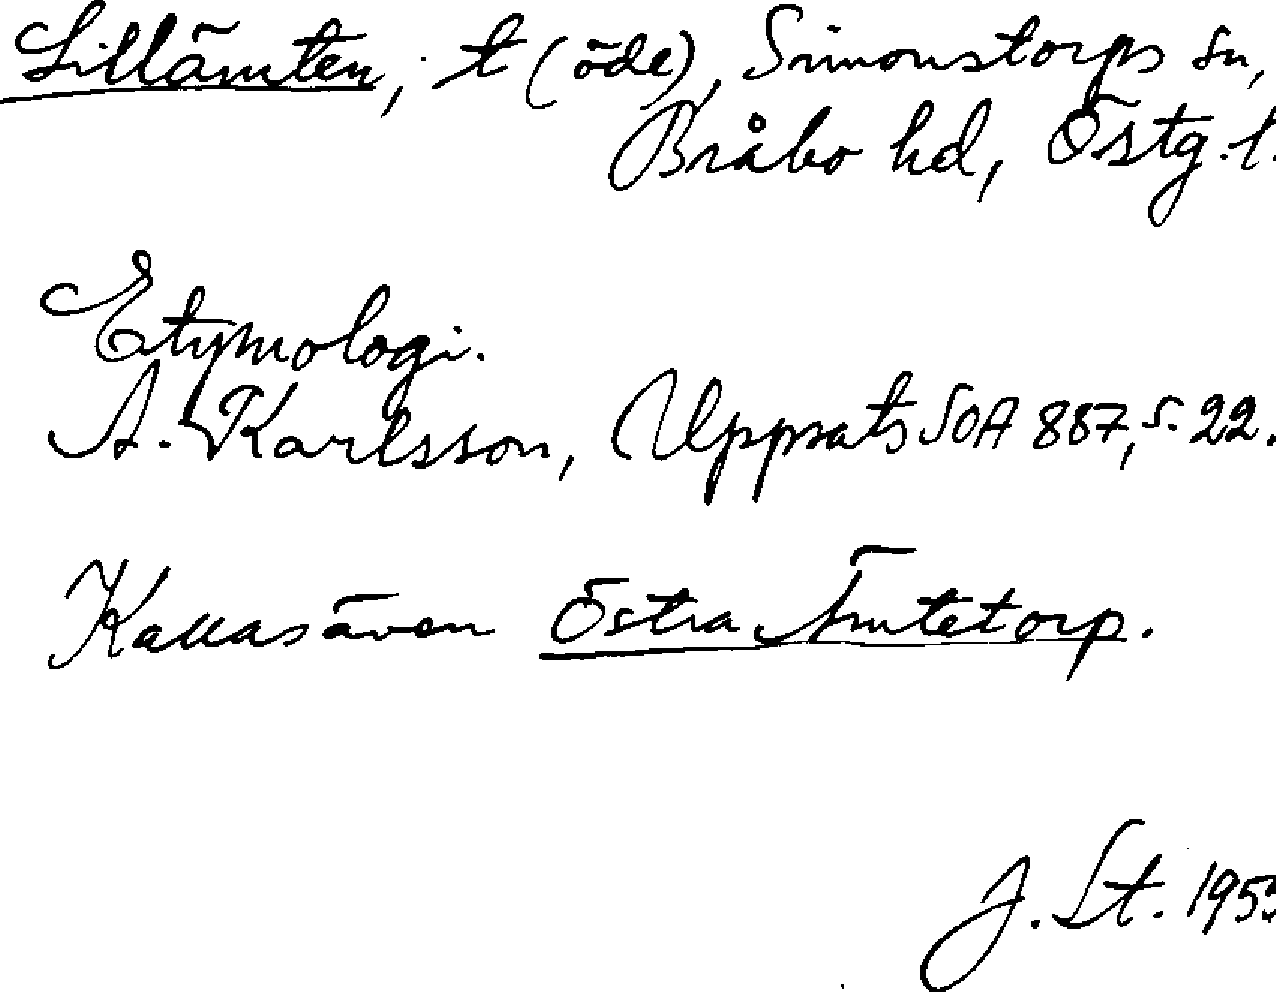 Lillämten, t (öde), Simonstorps sn,
Bråbo hd, Östg. l.
Etymologi.
A. Karlsson, Uppsats SOA 887, s. 22.
Kallas även Östra Ämtetorp.
J. St. 195